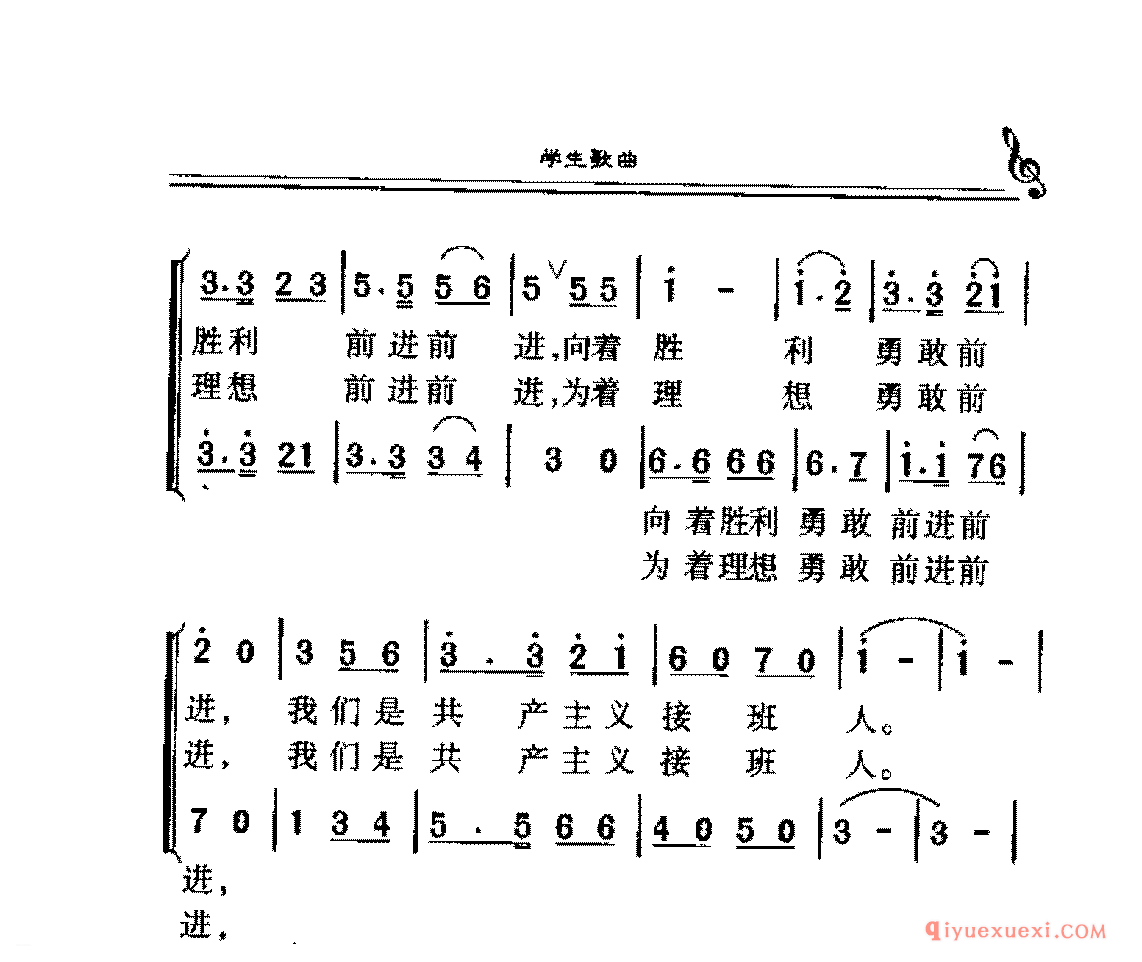 学生歌曲
3.3 2 3 | 5.5 5 6 | 5 ∨ 5 5 | i - | i.2̇ | 3̇.3̇ 2̇ i |
胜利 前进前 进,向着 胜 利 勇敢前
理想 前进前 进,为着 理 想 勇敢前
3̇.3̇ 2 1 | 3.3 3 4 | 3 0 | 6.6 6 6 | 6.7 | i.i 7 6 |
向着胜利 勇敢 前进前
为着理想 勇敢 前进前
2̇ 0 | 3 5 6 | 3̇.3̇ 2̇ i | 6 0 7 0 | i - | i - |
进, 我们是 共 产主义 接 班 人。
进, 我们是 共 产主义 接 班 人。
7 0 | 1 3 4 | 5.5 6 6 | 4 0 5 0 | 3 - | 3 - |
进,
进,
qiyuexuexi.COM